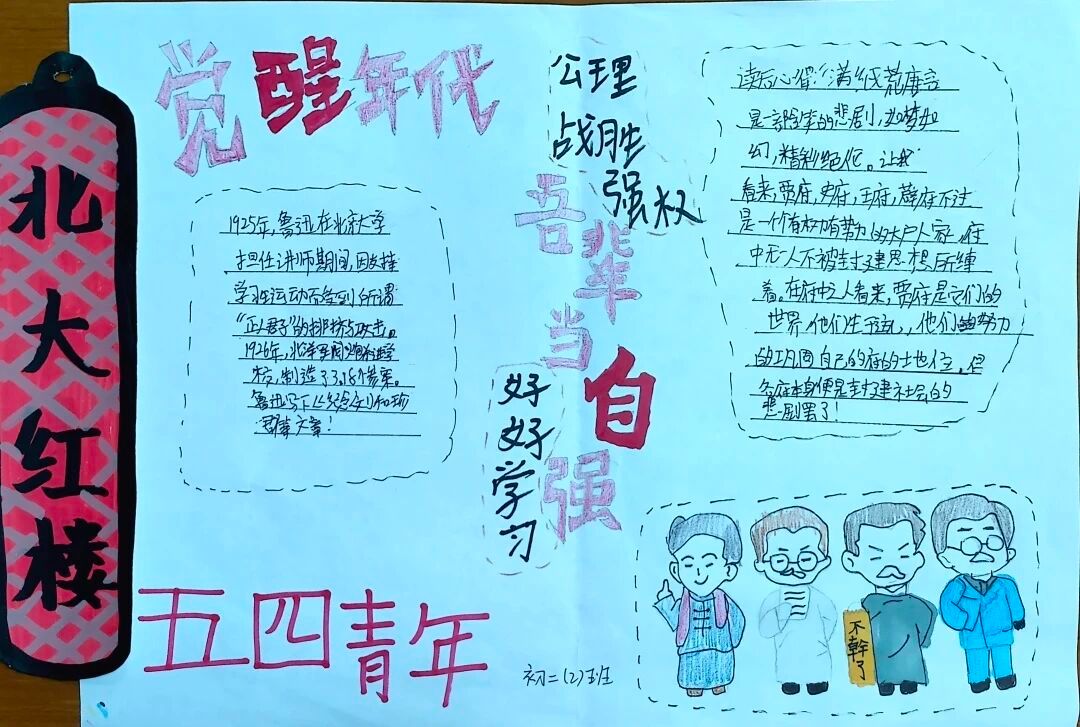 北大红楼
觉醒年代
1925年,鲁迅在北京大学
担任讲师期间,因支持
学生运动而受到所谓
“正人君子”的排挤与攻击。
1926年,北洋军阀 进学
校,制造了3.18惨案。
鲁迅写下 和珍
君等文章!
公理
战胜
强权
吾辈当自强
好好学习
读后心得:“满纸荒唐言”
是一部红 的悲剧,如梦如
幻,精彩绝伦。让我
看来,贾府,史府,王府,薛府不过
是一个有权有势力的大户人家,府
中无人不被封建思想所缠
着。在府中之人看来,贾府是它们的
世界,他们生于这儿,他们努力
的巩固自己的府的地位。但
各府本身便是封建社会的
悲剧罢了!
不幹了
五四青年
初二(2)班